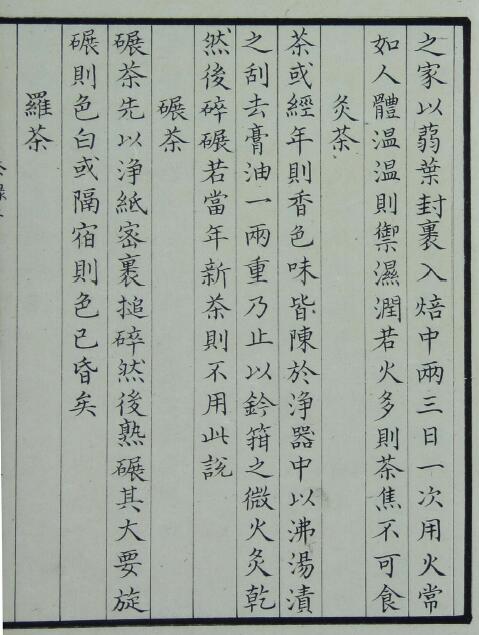 之家以蒻葉封裹入焙中兩三日一次用火常
如人體溫溫則禦濕潤若火多則茶焦不可食
炙茶
茶或經年則香色味皆陳於淨器中以沸湯漬
之刮去膏油一兩重乃止以鈐箝之微火炙乾
然後碎碾若當年新茶則不用此說
碾茶
碾茶先以淨紙密裹搥碎然後熟碾其大要旋
碾則色白或隔宿則色已昏矣
羅茶